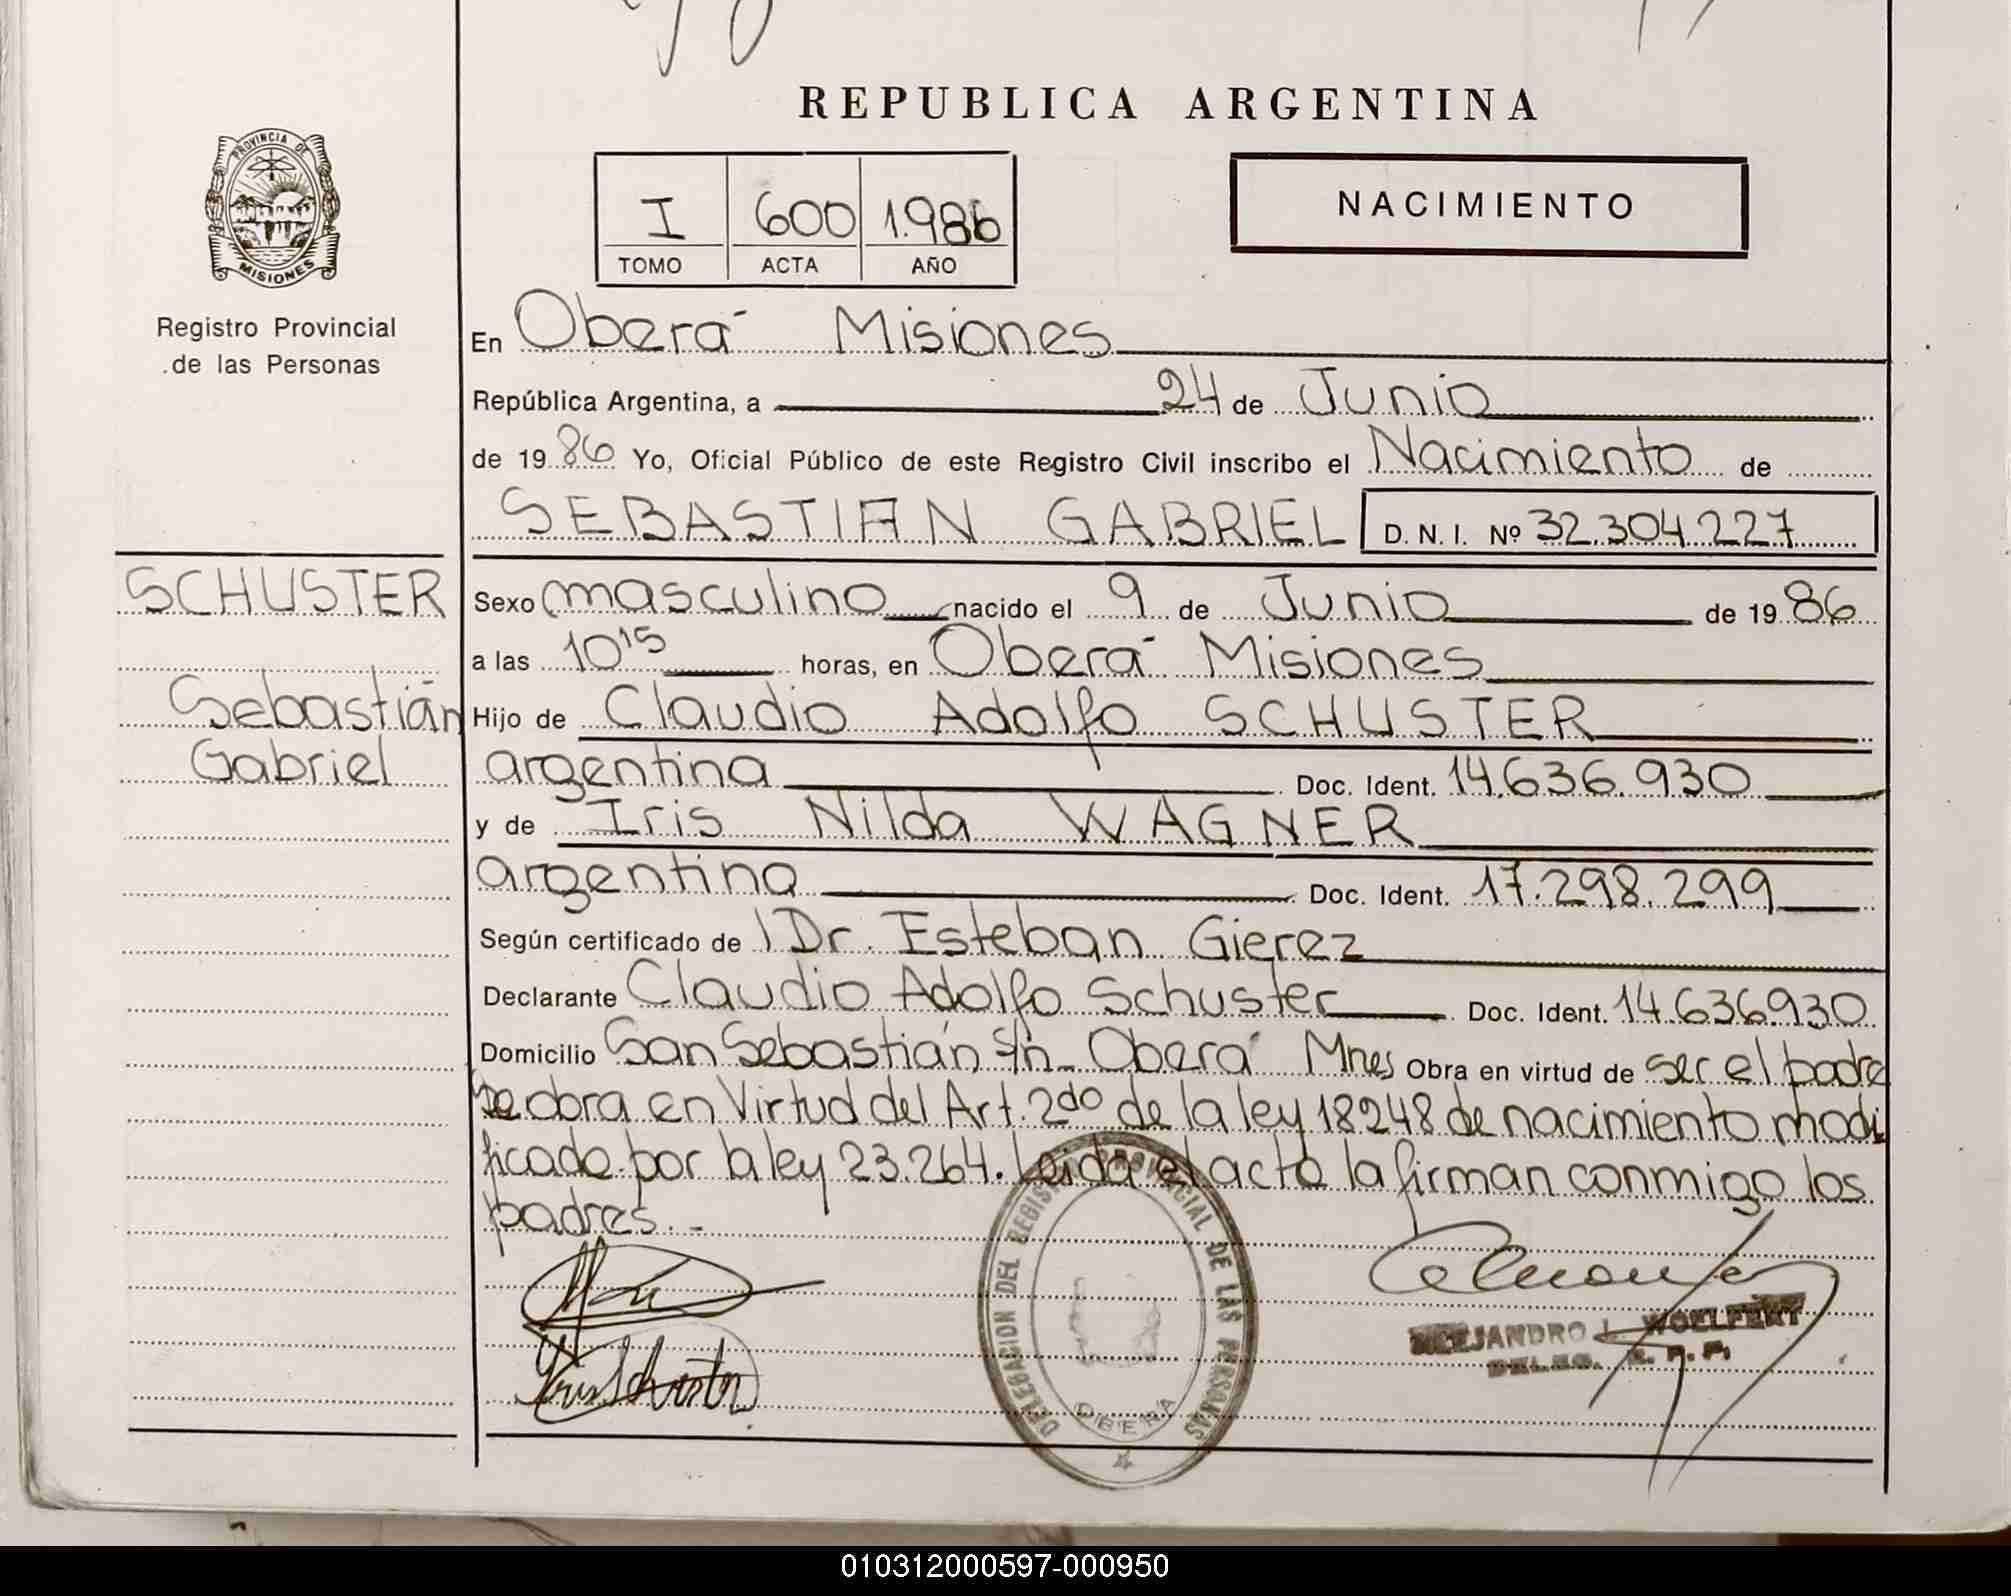 REPUBLICA ARGENTINA
PROVINCIA DE
MISIONES
Registro Provincial
de las Personas
I 600 1.986
TOMO ACTA AÑO
NACIMIENTO
En Oberá Misiones
República Argentina, a 24 de Junio
de 19 86 Yo, Oficial Público de este Registro Civil inscribo el Nacimiento de
SEBASTIAN GABRIEL D. N. I. Nº 32.304.227
SCHUSTER
Sebastián
Gabriel
Sexo masculino nacido el 9 de Junio de 19 86
a las 10 15 horas, en Oberá Misiones
Hijo de Claudio Adolfo SCHUSTER
argentina Doc. Ident. 14.636.930
y de Iris Nilda WAGNER
argentina Doc. Ident. 17.298.299
Según certificado de Dr. Esteban Gierez
Declarante Claudio Adolfo Schuster Doc. Ident. 14.636.930
Domicilio San Sebastián s/n - Oberá Mnes Obra en virtud de ser el padre
Se obra en Virtud del Art. 2do de la ley 18248 de nacimiento modi
ficado por la ley 23.264. Leida el acta la firman conmigo los
padres. -
DELEGACION DEL REGISTRO PROVINCIAL DE LAS PERSONAS
OBERA
Iris Schuster
ALEJANDRO L. WOELFERT
DELEG. R. P. P.
010312000597-000950